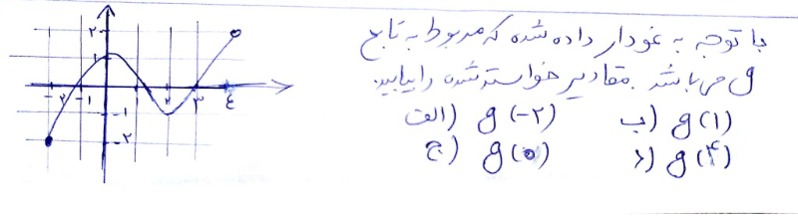 با توجه به نمودار داده شده که مربوط به تابع
g می باشد. مقادیر خواسته شده را بیابید.
الف) g(-۲) ب) g(1)
ج) g(0) د) g(۴)
۲
1
-۲ -1 ۲ ۳ ٤
-1
-۲